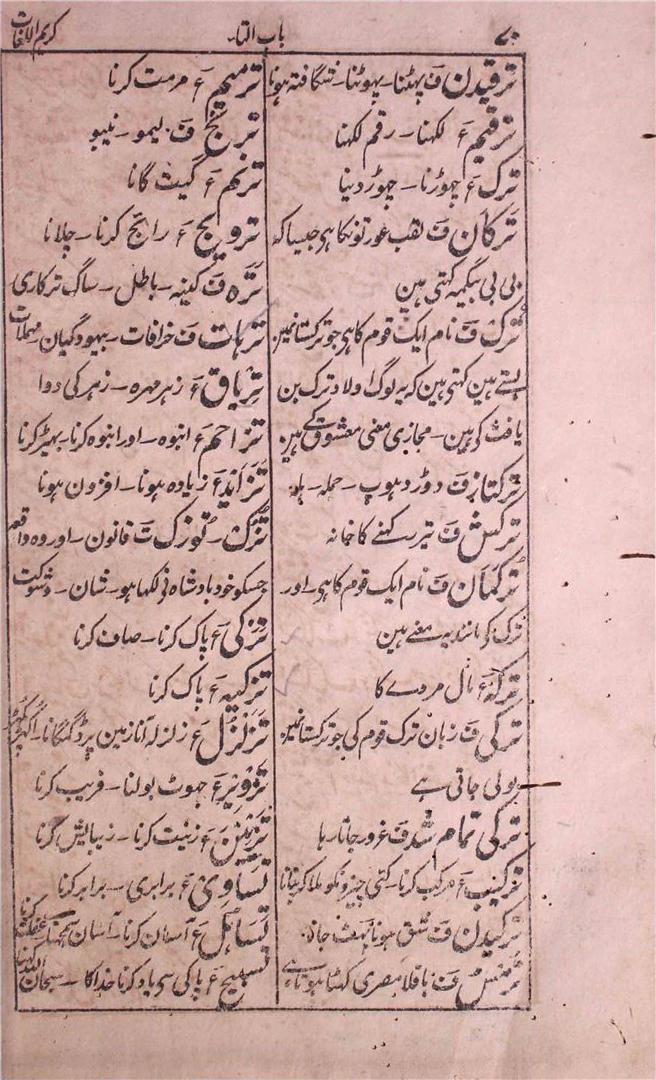 ۷۰
باب التاء
کریم اللغات
ترقیدن ف پهٹنا۔ پهوٹنا۔ شگافتہ ہونا
ترقیم ع لکہنا۔ رقم لکہنا
ترک ع چہوڑنا۔ چہوڑ دینا
ترکان ف لقب عورتونکا ہی جیسا کہ
بی بی بیگم کہتی ہین
ترک ف نام ایک قوم کا ہی جو ترکستانمین
بستے ہین کہتی ہین کہ یہ لوگ اولاد ترک بن
یافث کی ہین۔ مجازی معنی معشوق کے ہین
ترکتاز ف دوڑ دہوپ۔ حملہ۔
ترکش ف تیر رکہنے کا خانہ
ترکمان ف نام ایک قوم کا ہی۔ اور
ترک کی مانند یہ معنے ہین
ترکہ ع مال مردے کا
ترکی ف زبان ترک قوم کی جو ترکستانمین
بولی جاتی ہے
ترکی تمام شد ف غرور جاتا رہا
ترکیب ع مرکب کرنا۔ کئی چیزونکو ملا کر بنانا
ترکیدن ف شق ہونا پہٹ جانا
ف باقلا مصری کہٹا ہوتا ہے
ترمیم ع مرمت کرنا
ترنج ف لیمو۔ نیبو
ترنم ع گیت گانا
ترویج ع رایج کرنا۔ چلانا
ترہ ف کینہ۔ باطل۔ ساگ ترکاری
ترہات ف خرافات۔ بیہودگیان۔ مہملات
تریاق ع زہر مہرہ۔ زہر کی دوا
تزاحم ع انبوہ۔ اور انبوہ کرنا۔ بہیڑ کرنا
تزاید ع زیادہ ہونا۔ افزون ہونا
تزک۔ توزک ت قانون۔ اور وہ واقعہ
جسکو خود بادشاہ نی لکہا ہو۔ شان۔ و شوکت
تزکی ع پاک کرنا۔ صاف کرنا
تزکیہ ع پاک کرنا
تزلزل ع زلزلہ آنا زمین پر ڈگمگانا۔
تزویر ع جہوٹ بولنا۔ فریب کرنا
تزیین ع زینت کرنا۔ زیبایش کرنا
تساوی ع برابری۔ برابر کرنا
تساہل ع آسان کرنا۔ آسان سمجہنا۔ غفلت کرنا
تسبیح ع پاکی سی یاد کرنا خدا کا۔ سبحان اللہ کہنا